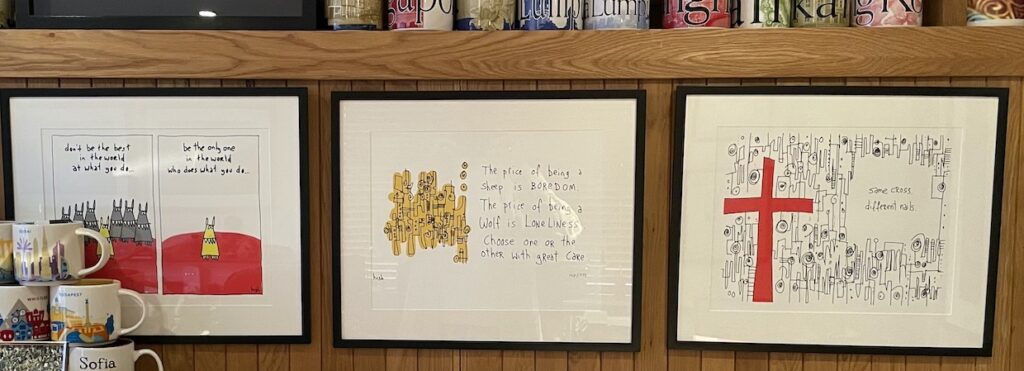 Lump
Lump
kar
don't be the best
in the world
at what you do...
be the only one
in the world
who does what you do...
hugh
The price of being a
Sheep is BOREDOM.
The price of being a
Wolf is LONELINESS
Choose one or the
other with great care
hugh
same cross.
different nails.
BUDAPEST
Sofia